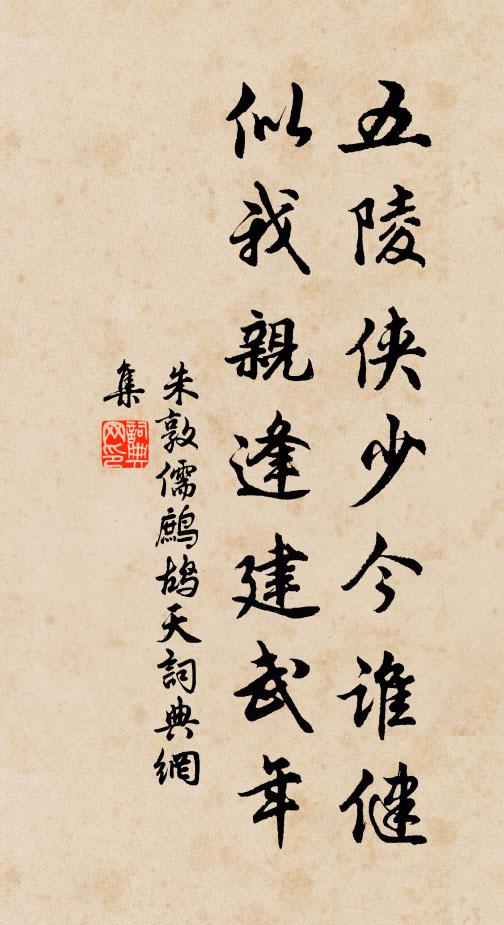 五陵俠少今誰健
似我親逢建武年
朱敦儒鷓鴣天詞典網
集
詞典
网印